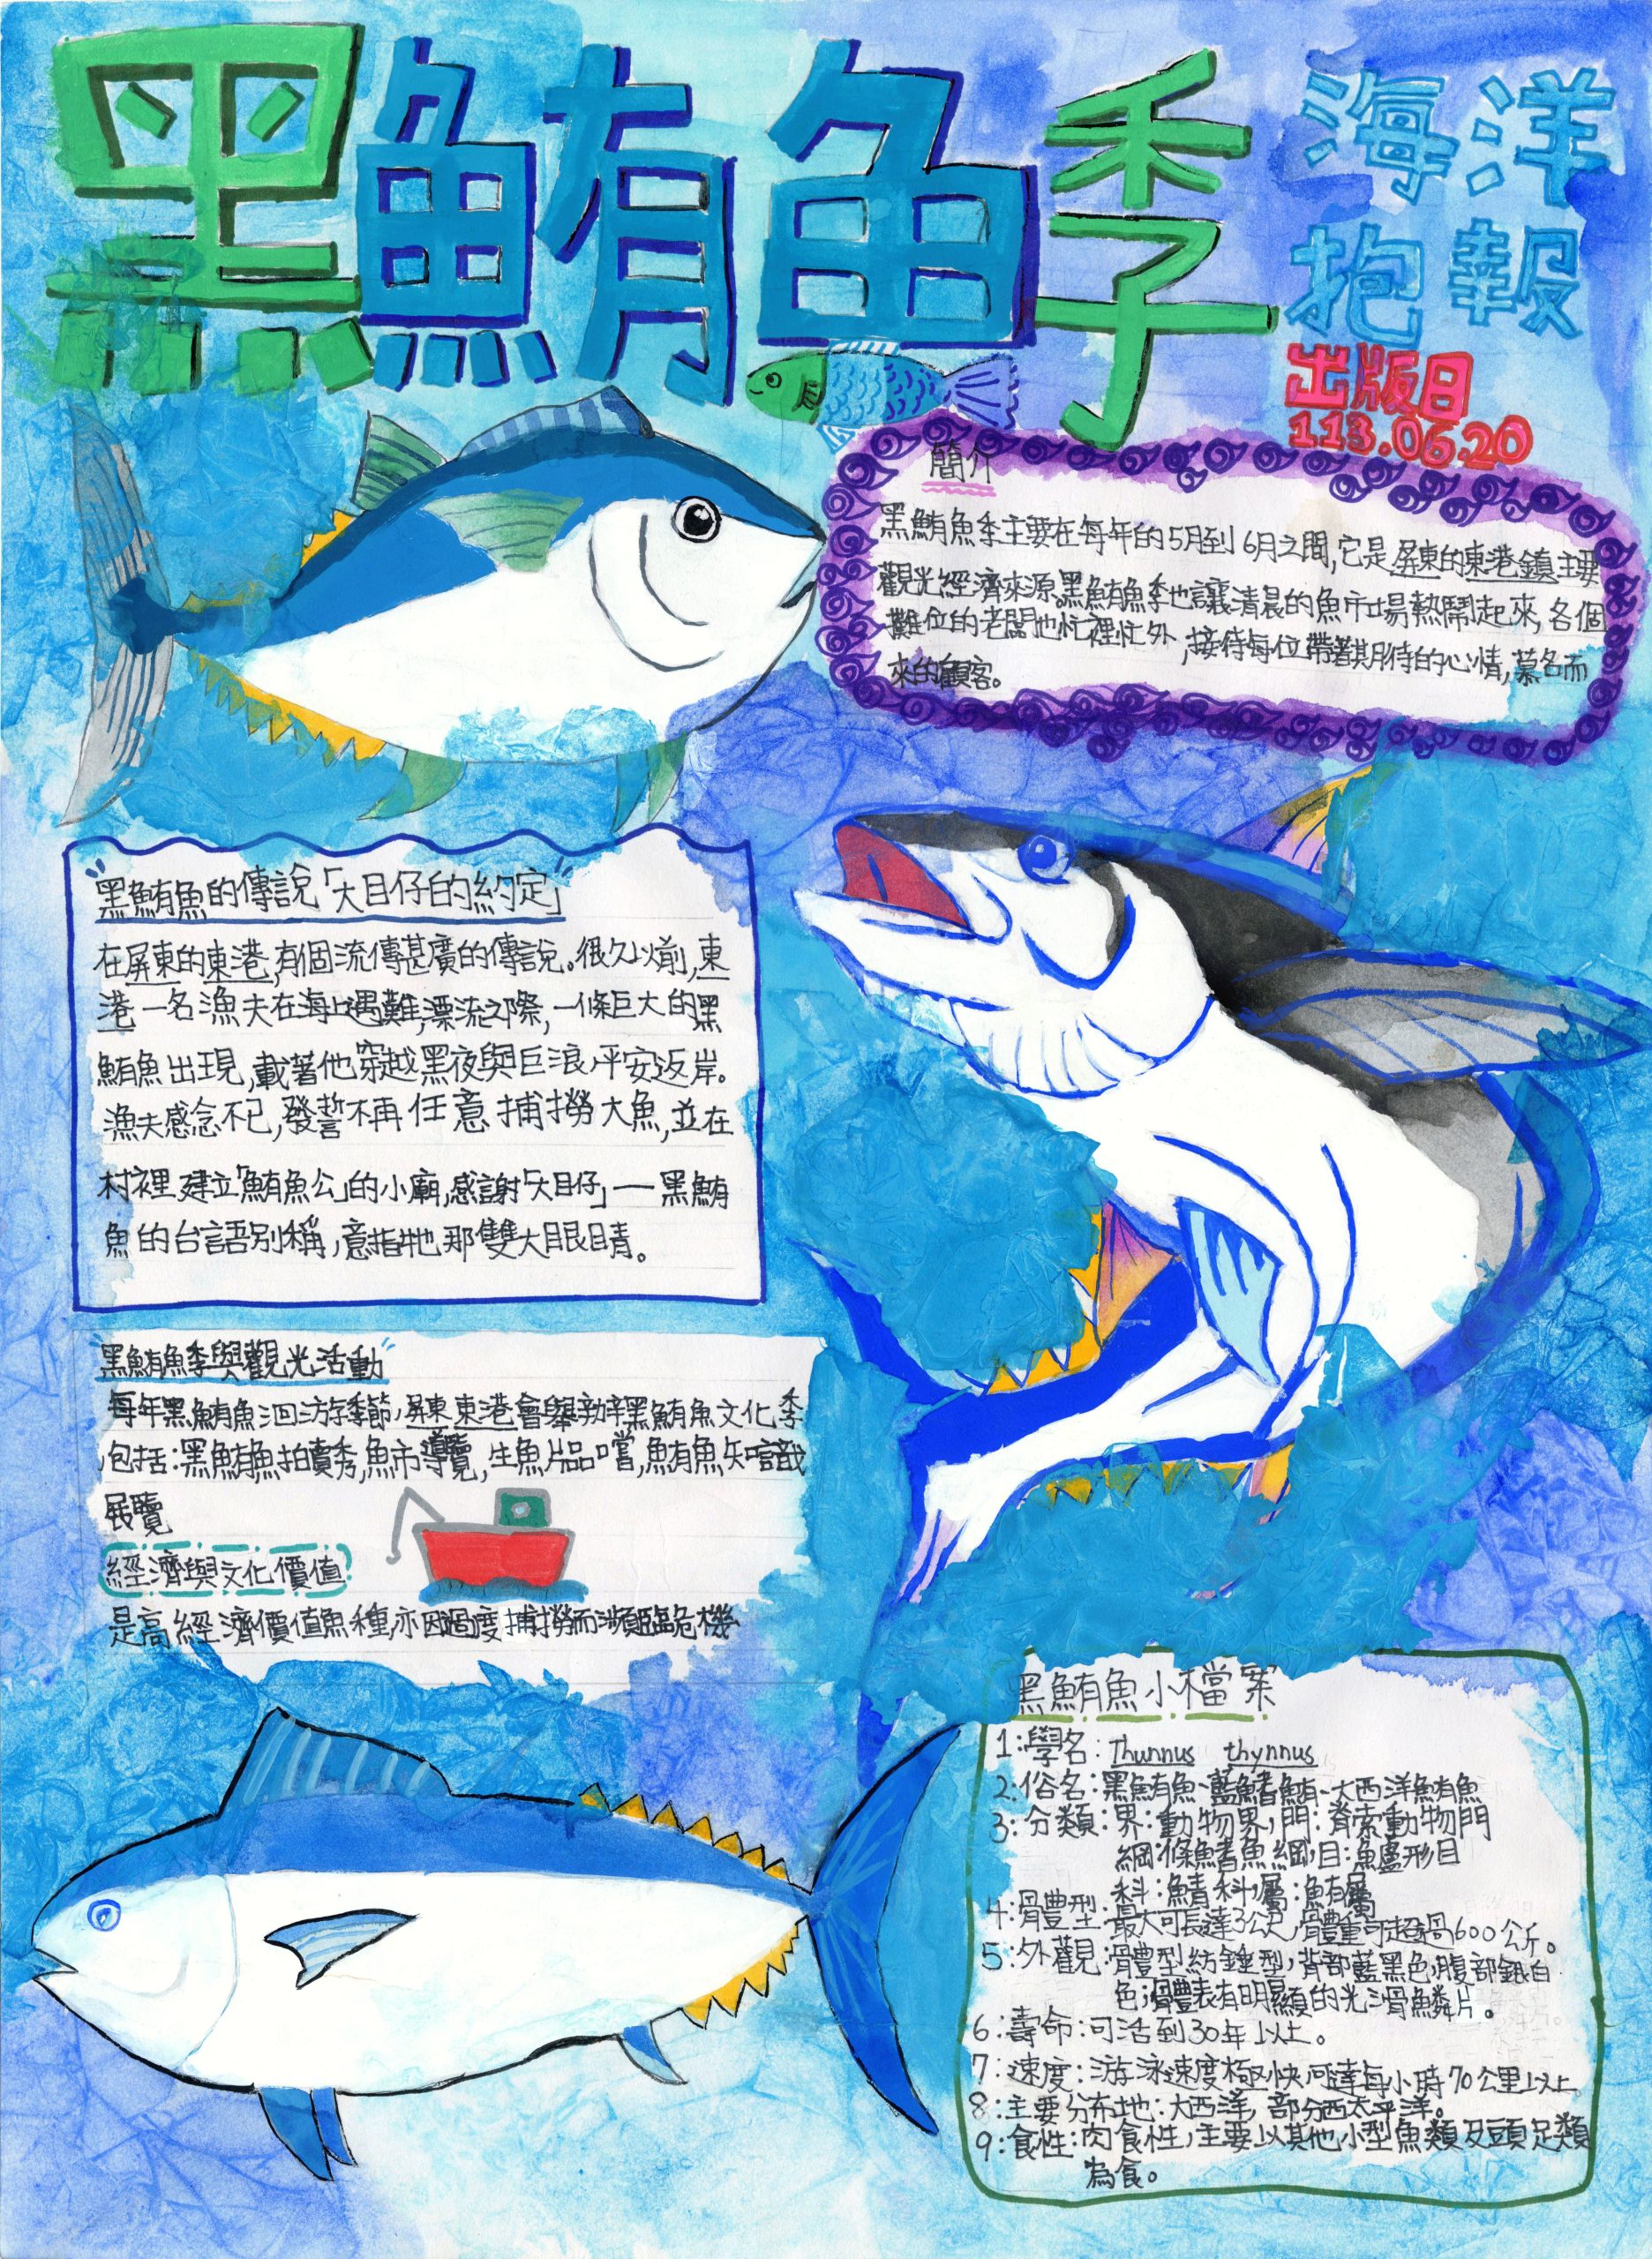 黑鮪魚季
海洋
抱報
出版日
113.06.20
簡介
黑鮪魚季主要在每年的5月到6月之間,它是屏東的東港鎮主要
觀光經濟來源。黑鮪魚季也讓清晨的魚市場熱鬧起來,各個
難位的老闆也忙裡忙外,接待每位帶著期待的心情,慕名而
來的顧客。
黑鮪魚的傳說「大目仔的約定」
在屏東的東港,有個流傳甚廣的傳說。很久以前,東
港一名漁夫在海上遇難,漂流之際,一條巨大的黑
鮪魚出現,載著他穿越黑夜與巨浪,平安返岸。
漁夫感念不已,發誓不再任意捕撈大魚,並在
村裡建立「鮪魚公」的小廟,感謝「大目仔」——黑鮪
魚的台語別稱,意指牠那雙大眼睛。
黑鮪魚季與觀光活動
每年黑鮪魚洄游季節,屏東東港會舉辦黑鮪魚文化季
包括:黑鮪魚拍賣秀,魚市導覽,生魚片品嚐,鮪魚知識
展覽
經濟與文化價值
是高經濟價值魚種,亦因過度捕撈而瀕臨危機
黑鮪魚小檔案
1:學名:Thunnus thynnus
2:俗名:黑鮪魚、藍鰭鮪、大西洋鮪魚
3:分類:界:動物界,門:脊索動物門
綱:條鰭魚綱,目:鱸形目
科:鯖科,屬:鮪屬
4:體型:最大可長達3公尺,體重可超過600公斤。
5:外觀:體型紡錘型,背部藍黑色,腹部銀白
色;體表有明顯的光滑鱗片。
6:壽命:可活到30年以上。
7:速度:游泳速度極快,可達每小時70公里以上。
8:主要分布地:大西洋,部分西太平洋。
9:食性:肉食性,主要以其他小型魚類及頭足類
為食。